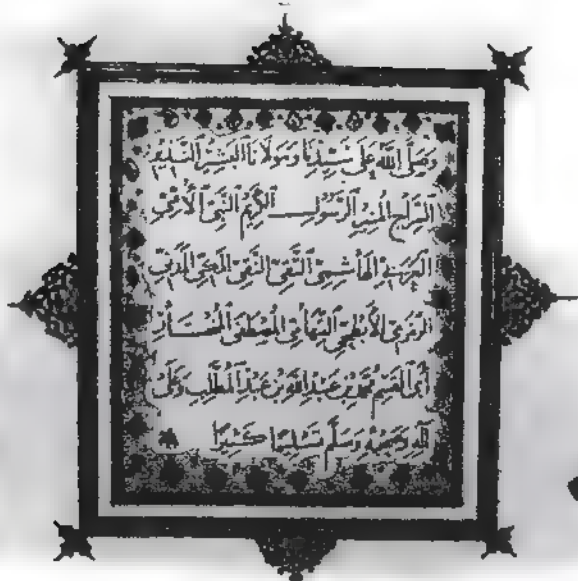 وَصَلَّى اللَّهُ عَلَى سَيِّدِنَا وَمَوْلَانَا الْبَشِيرِ النَّذِيرِ
السِّرَاجِ الْمُنِيرِ الرَّسُولِ الْكَرِيمِ النَّبِيِّ الْأُمِّيِّ
الْعَرَبِيِّ الْهَاشِمِيِّ التَّقِيِّ النَّقِيِّ الْمَدَنِيِّ
الْأَبْطَحِيِّ التِّهَامِيِّ الْمُصْطَفَى الْمُخْتَارِ
أَبِي الْقَاسِمِ مُحَمَّدِ بْنِ عَبْدِ اللَّهِ بْنِ عَبْدِ الْمُطَّلِبِ وَعَلَى
آلِهِ وَصَحْبِهِ وَسَلَّمَ تَسْلِيمًا كَثِيرًا